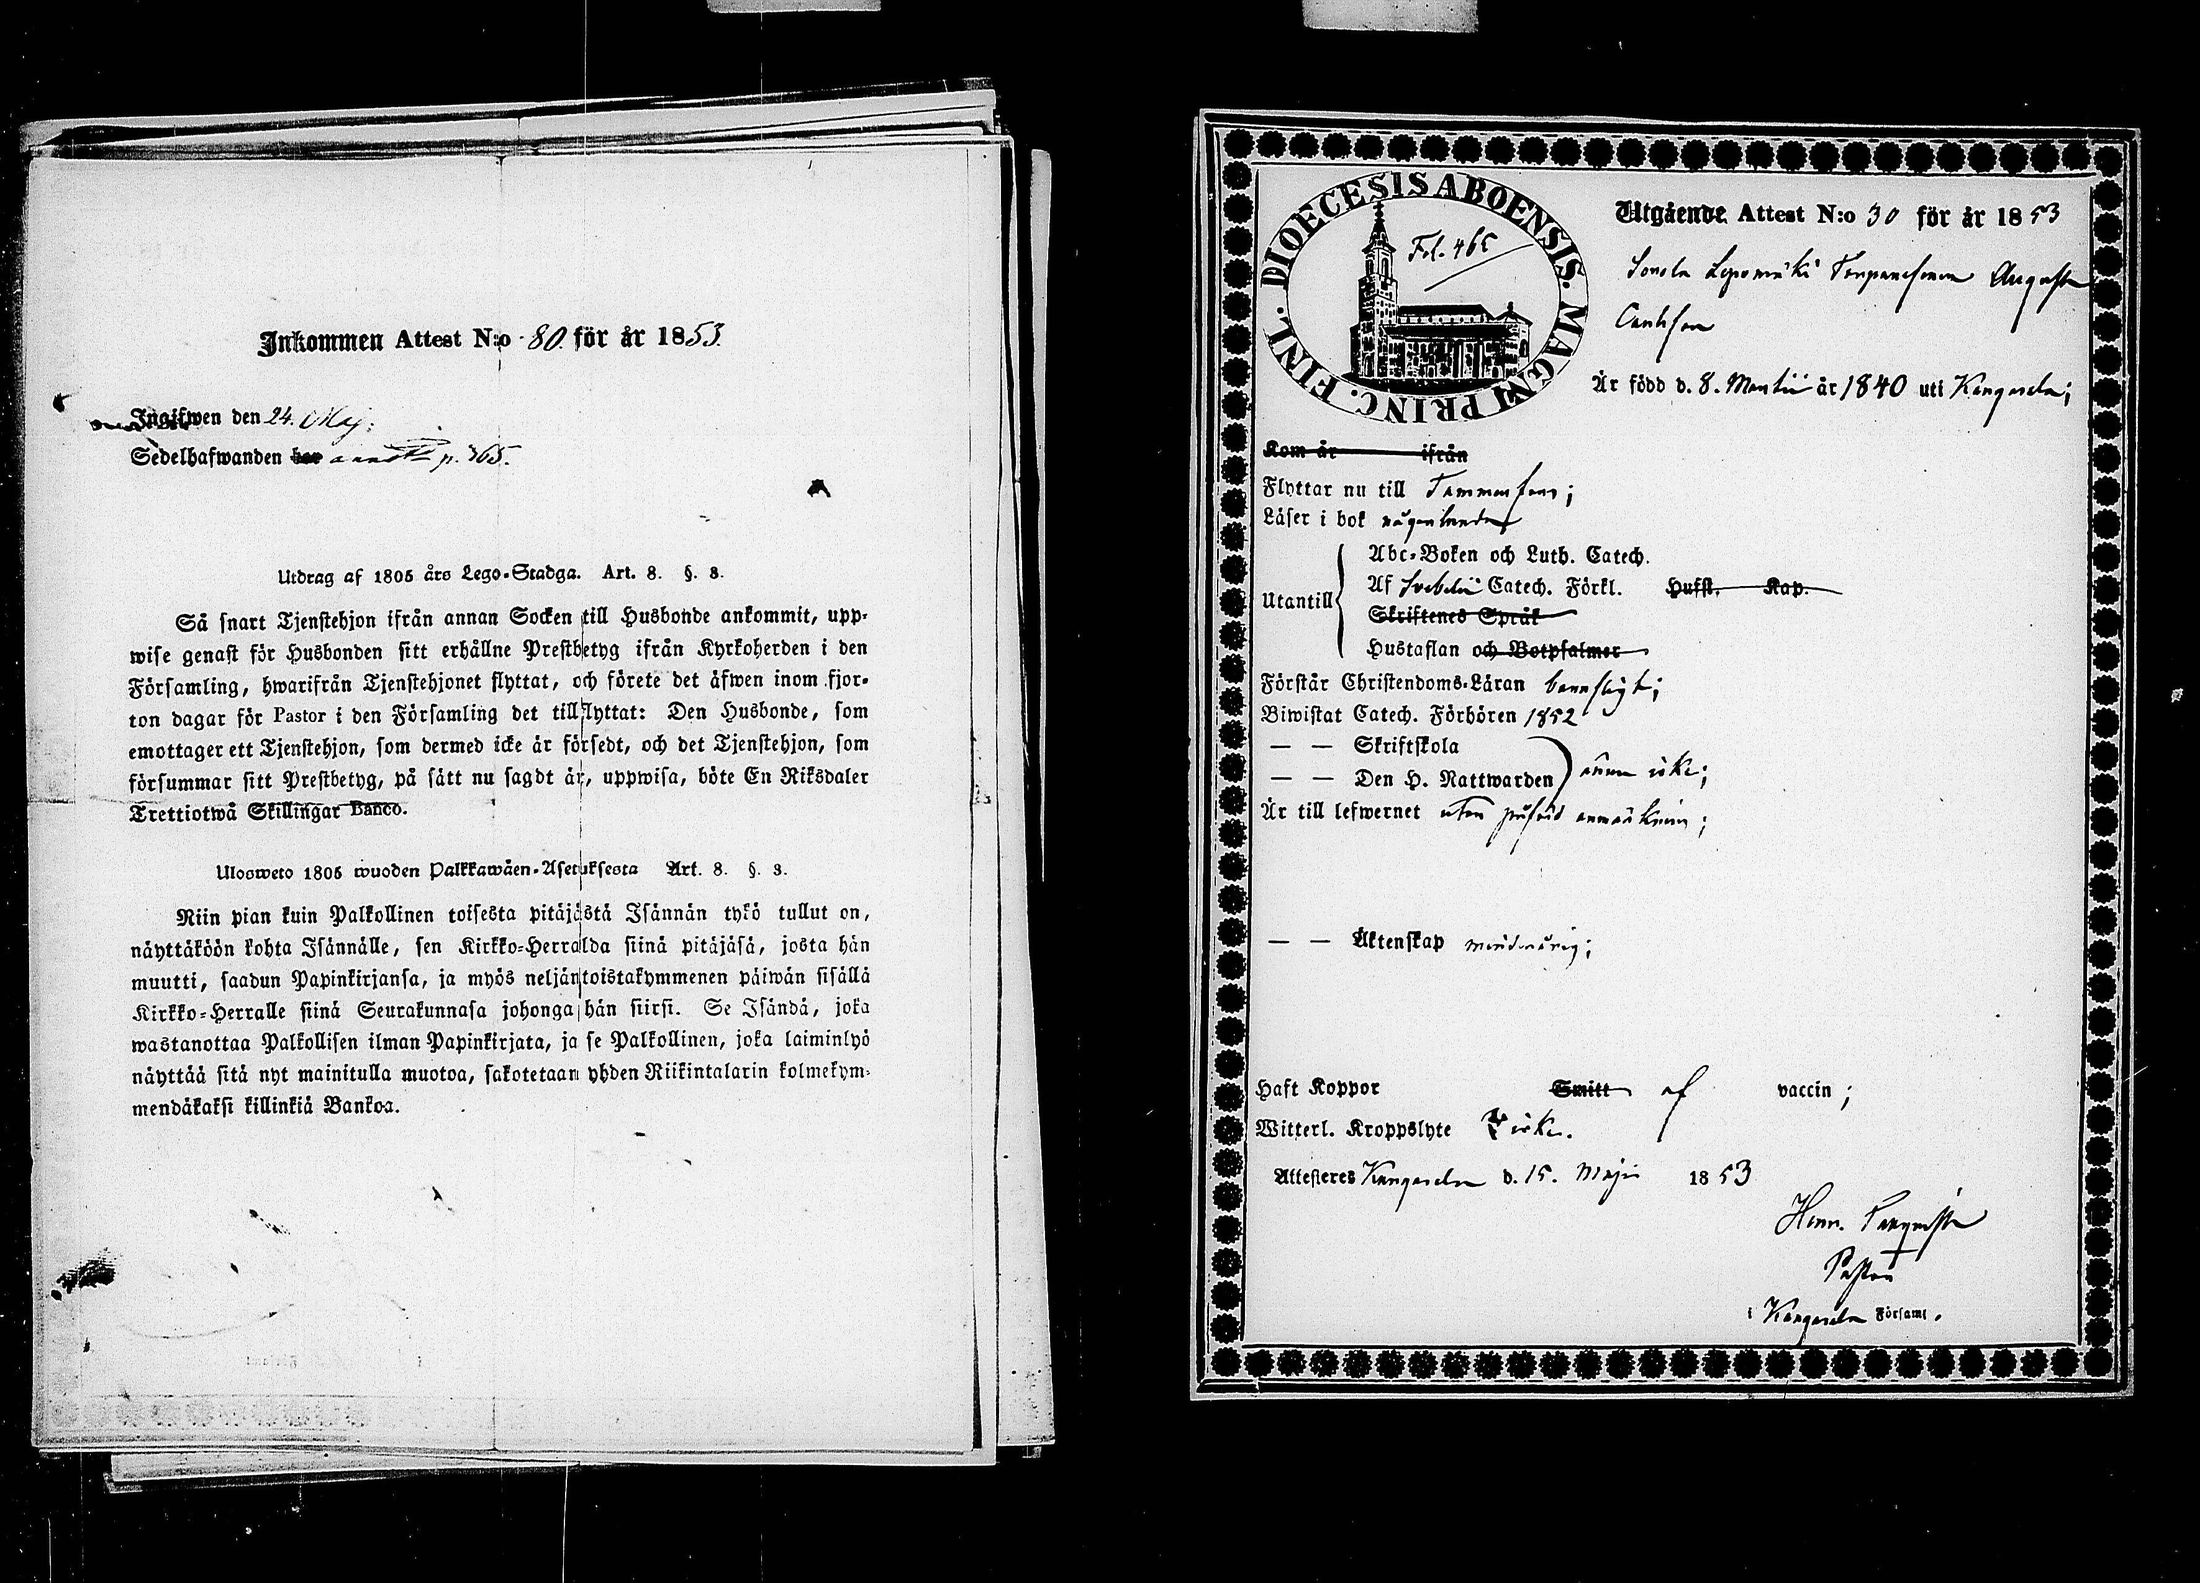 Inkommen Attest N:o 80. för år 1853.
Ingifwen den 24. Maj.
Sedelhafwanden har p. 365.
Utdrag af 1805 års Lego-Stadga. Art. 8. §. 3.
Så snart Tjenstehjon ifrån annan Socken till Husbonde ankommit, upp-
wise genast för Husbonden sitt erhållne Prestbetyg ifrån Kyrkoherden i den
Församling, hwarifrån Tjenstehjonet flyttat, och förete det äfwen inom fjor-
ton dagar för Pastor i den Församling det tillflyttat: Den Husbonde, som
emottager ett Tjenstehjon, som dermed icke är försedt, och det Tjenstehjon, som
försummar sitt Prestbetyg, på sätt nu sagdt är, uppwisa, böte En Riksdaler
Trettiotwå Skillingar Banco.
Ulosweto 1805 wuoden Palkkawäen-Asetuksesta Art. 8. §. 3.
Niin pian kuin Palkollinen toisesta pitäjästä Isännän tykö tullut on,
näyttäköön kohta Isännälle, sen Kirkko-Herralda siinä pitäjäsä, josta hän
muutti, saadun Papinkirjansa, ja myös neljäntoistakymmenen päiwän sisällä
Kirkko-Herralle siinä Seurakunnasa johonga hän siirsi. Se Isändä, joka
wastanottaa Palkollisen ilman Papinkirjata, ja se Palkollinen, joka laiminlyö
näyttää sitä nyt mainitulla muotoa, sakotetaan yhden Riikintalarin kolmekym-
mendäkaksi killinkiä Bankoa.
DIOECESIS ABOENSIS. MAGNI PRINC. FINL.
Fol. 465
Utgående Attest N:o 30 för år 1853
Lepomäki Torparesonen August
Carlsson
Är född d. 8. Martii år 1840 uti Kangasala;
Kom år ifrån
Flyttar nu till Tammerfors;
Läser i bok någorlunda
Utantill
Abc-Boken och Luth. Catech.
Af Svebelii Catech. Förkl. Hufst. Kap.
Skriftenes Språk
Hustaflan och Botpsalmer
Förstår Christendoms-Läran
Biwistat Catech. Förhören 1852
— — Skriftskola
— — Den H. Nattwarden ännu icke;
Är till lefwernet utan anmärkning;
— — Äktenskap minderårig;
Haft Koppor Smitt af vaccin;
Witterl. Kroppslyte icke.
Attesteres Kangasala d. 15. Maji 1853
Henr.
Pastor
i Kangasala Församl.